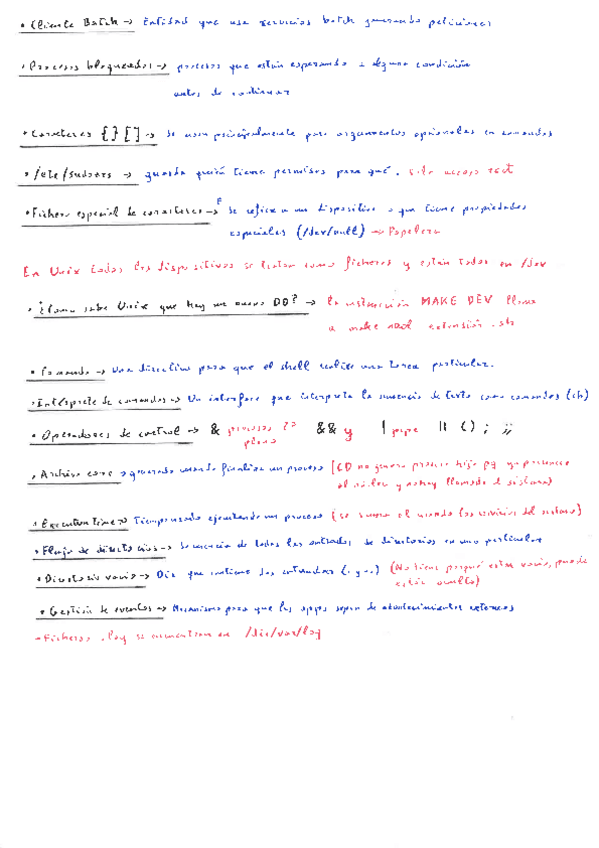 • Cliente Batch → Entidad que usa servicios batch generando peticiones
• Procesos bloqueados → procesos que están esperando a alguna condición
antes de continuar
• Caracteres {} [] → Se usan principalmente para argumentos opcionales en comandos
• /etc/sudoers → guarda quién tiene permisos para qué. Solo acceso root
• Fichero especial de caracteres → Se refiere a un dispositivo o que tiene propiedades
especiales (/dev/null) → Papelera
En Unix todos los dispositivos se tratan como ficheros y están todos en /dev
• ¿Como sabe Unix que hay un nuevo DD? → la instrucción MAKE DEV llama
a extensión .sh
• Comando → Una directiva para que el shell realice una tarea particular.
• Intérprete de comandos → Un interfaz que interpreta la secuencia de texto como comandos (sh)
• Operadores de control → & procesos 2º && y | pipe || () ; ;;
plano
• Archivo core → generado cuando finaliza un proceso
el núcleo y no hay llamada al sistema)
• Execution time → Tiempo ejecutando un proceso (se suma el usando los servicios del sistema)
• Flujo de directorios → Secuencia de todas las entradas de directorios en uno particular
• Directorio vacio → Dir que contiene dos entradas (. y ..) (No tiene porqué estar vacio, puede
estar oculto)
• Gestión de eventos → Mecanismo para que las apps sepan de acontecimientos externos
• Ficheros .log se encuentran en /dir/var/log